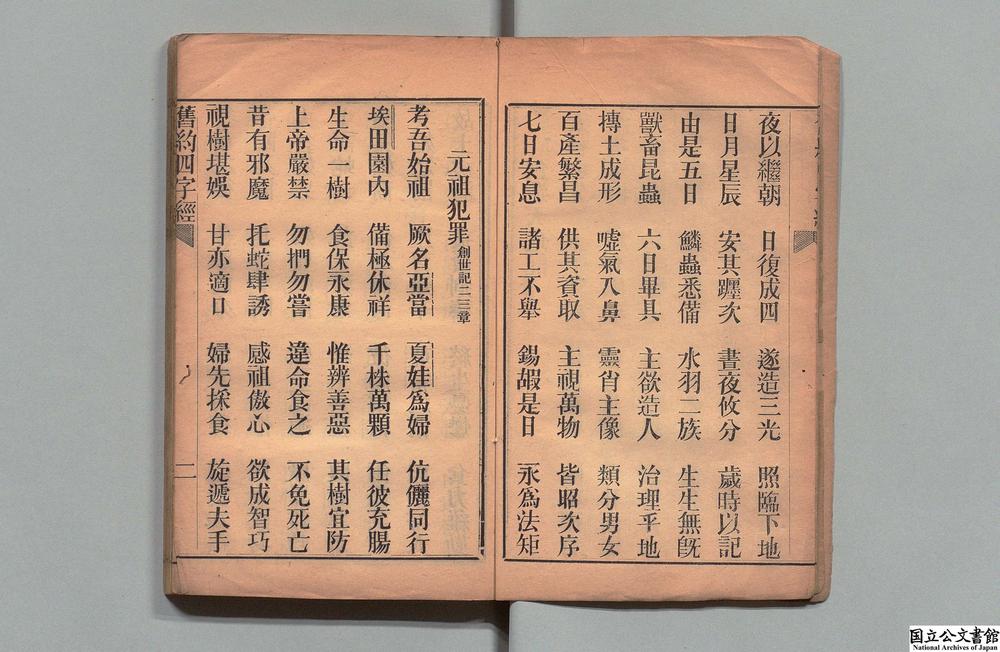 夜以繼朝 日復成四 遂造三光 照臨下地
日月星辰 安其躔次 晝夜攸分 歲時以記
由是五日 鱗蟲悉備 水羽二族 生生無旣
獸畜昆蟲 六日畢具 主欲造人 治理乎地
摶土成形 噓氣入鼻 靈肖主像 類分男女
百產繁昌 供其資取 主視萬物 皆昭次序
七日安息 諸工不舉 錫嘏是日 永爲法矩
元祖犯罪 創世記二三章
考吾始祖 厥名亞當 夏娃爲婦 伉儷同行
埃田園內 備極休祥 千株萬顆 任彼充腸
生命一樹 食保永康 惟辨善惡 其樹宜防
上帝嚴禁 勿捫勿嘗 違命食之 不免死亡
昔有邪魔 托蛇肆誘 感祖傲心 欲成智巧
視樹堪娛 甘亦適口 婦先採食 旋遞夫手
舊約四字經 二
国立公文書館
National Archives of Japan